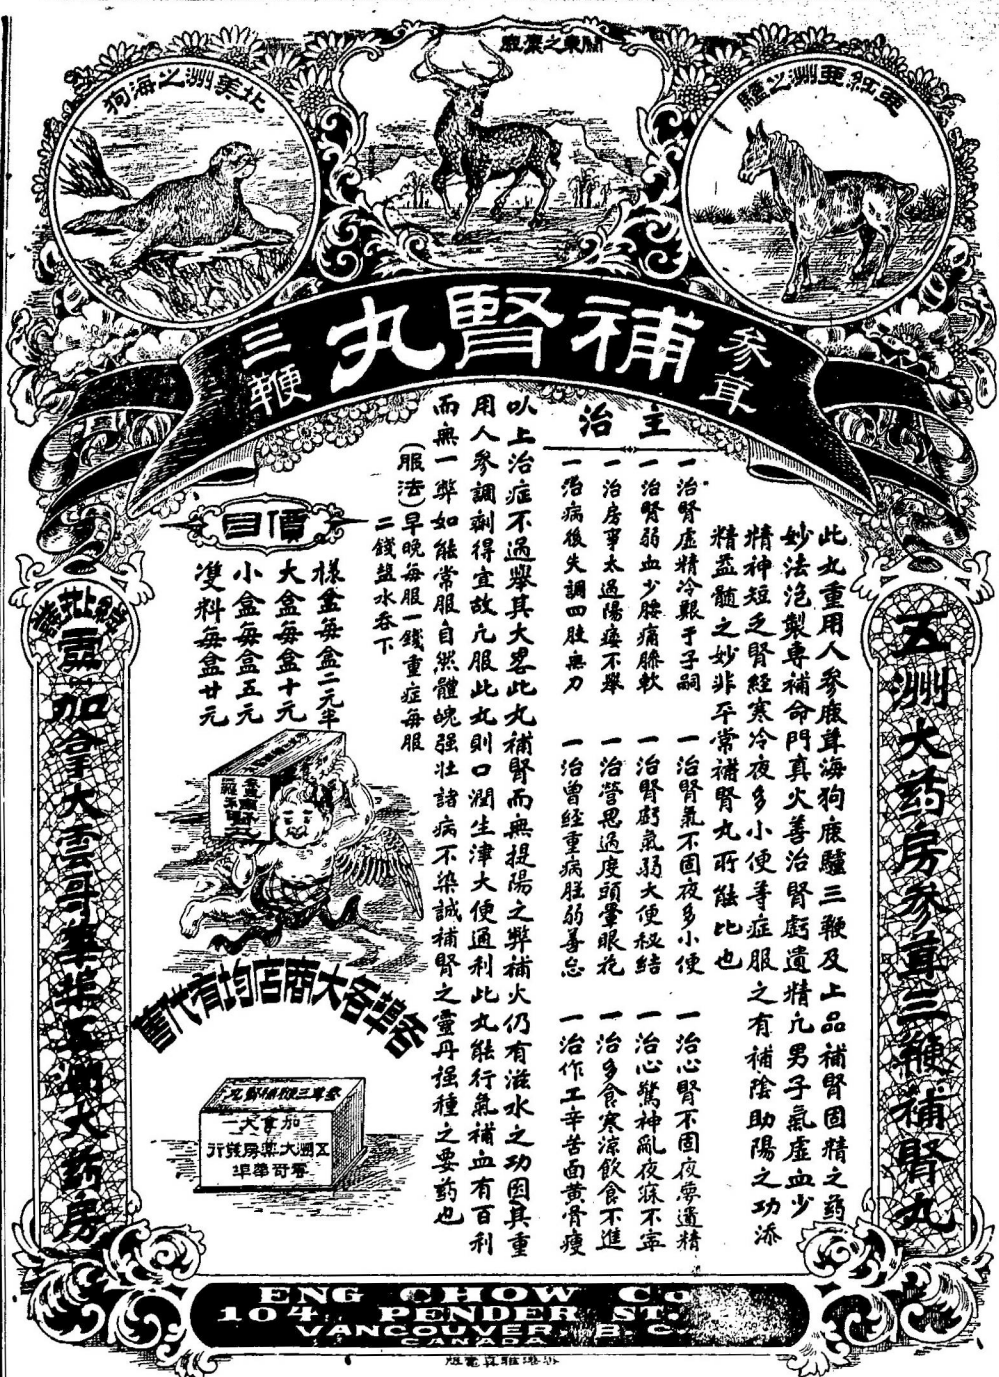 北美洲之海狗
關東之麋鹿
亞洲之驢
參茸
補腎丸
三鞭
五洲大药房參茸三鞭補腎丸
此丸重用人參鹿茸海狗鹿驢三鞭及上品補腎固精之葯
妙法泡製專補命門真火善治腎虧遺精凢男子氣虛血少
精神短乏腎經寒冷夜多小便等症服之有補陰助陽之功添
精益髓之妙非平常補腎丸所能比也
主治
一治腎虛精冷艱于子嗣
一治腎氣不固夜多小便
一治心腎不固夜夢遺精
一治腎弱血少腰痛膝軟
一治腎虧氣弱大便秘結
一治心驚神亂夜寐不寧
一治房事太過陽痿不舉
一治營思過度頭暈眼花
一治多食寒涼飲食不進
一治病後失調四肢無力
一治曾經重病胫弱善忘
一治作工辛苦面黄骨瘦
以上治症不過舉其大畧此丸補腎而無提陽之弊補火仍有滋水之功因其重
用人參調劑得宜故凢服此丸則口潤生津大便通利此丸能行氣補血有百利
而無一弊如能常服自然體魄强壮諸病不染誠補腎之靈丹强種之要葯也
(服法)早晚每服一錢重症每服
二錢盐水吞下
價目
樣盒每盒二元半
大盒每盒十元
小盒每盒五元
雙料每盒廿元
各埠各大商店均有代售
參茸三鞭補腎丸
加拿大
五洲大藥房發行
雲哥華埠
加拿大雲哥華埠五洲大药房
ENG CHOW Co
104 PENDER ST.
VANCOUVER, B.C.
CANADA